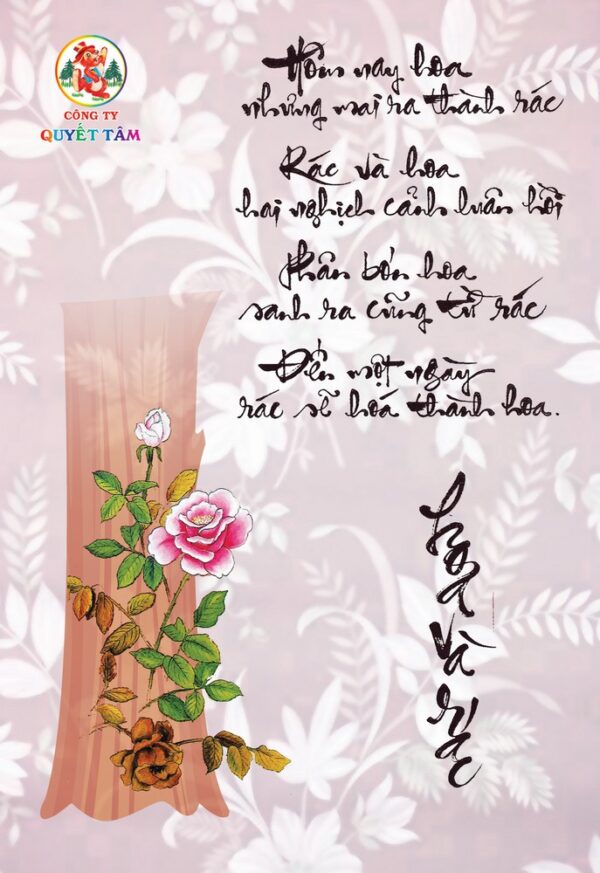 CÔNG TY
QUYẾT TÂM
Hôm nay hoa
nhưng mai ra thành rác
Rác và hoa
hai nghịch cảnh luân hồi
Phân bón hoa
sanh ra cũng từ rác
Đến một ngày
rác sẽ hoá thành hoa.
Hoa và rác